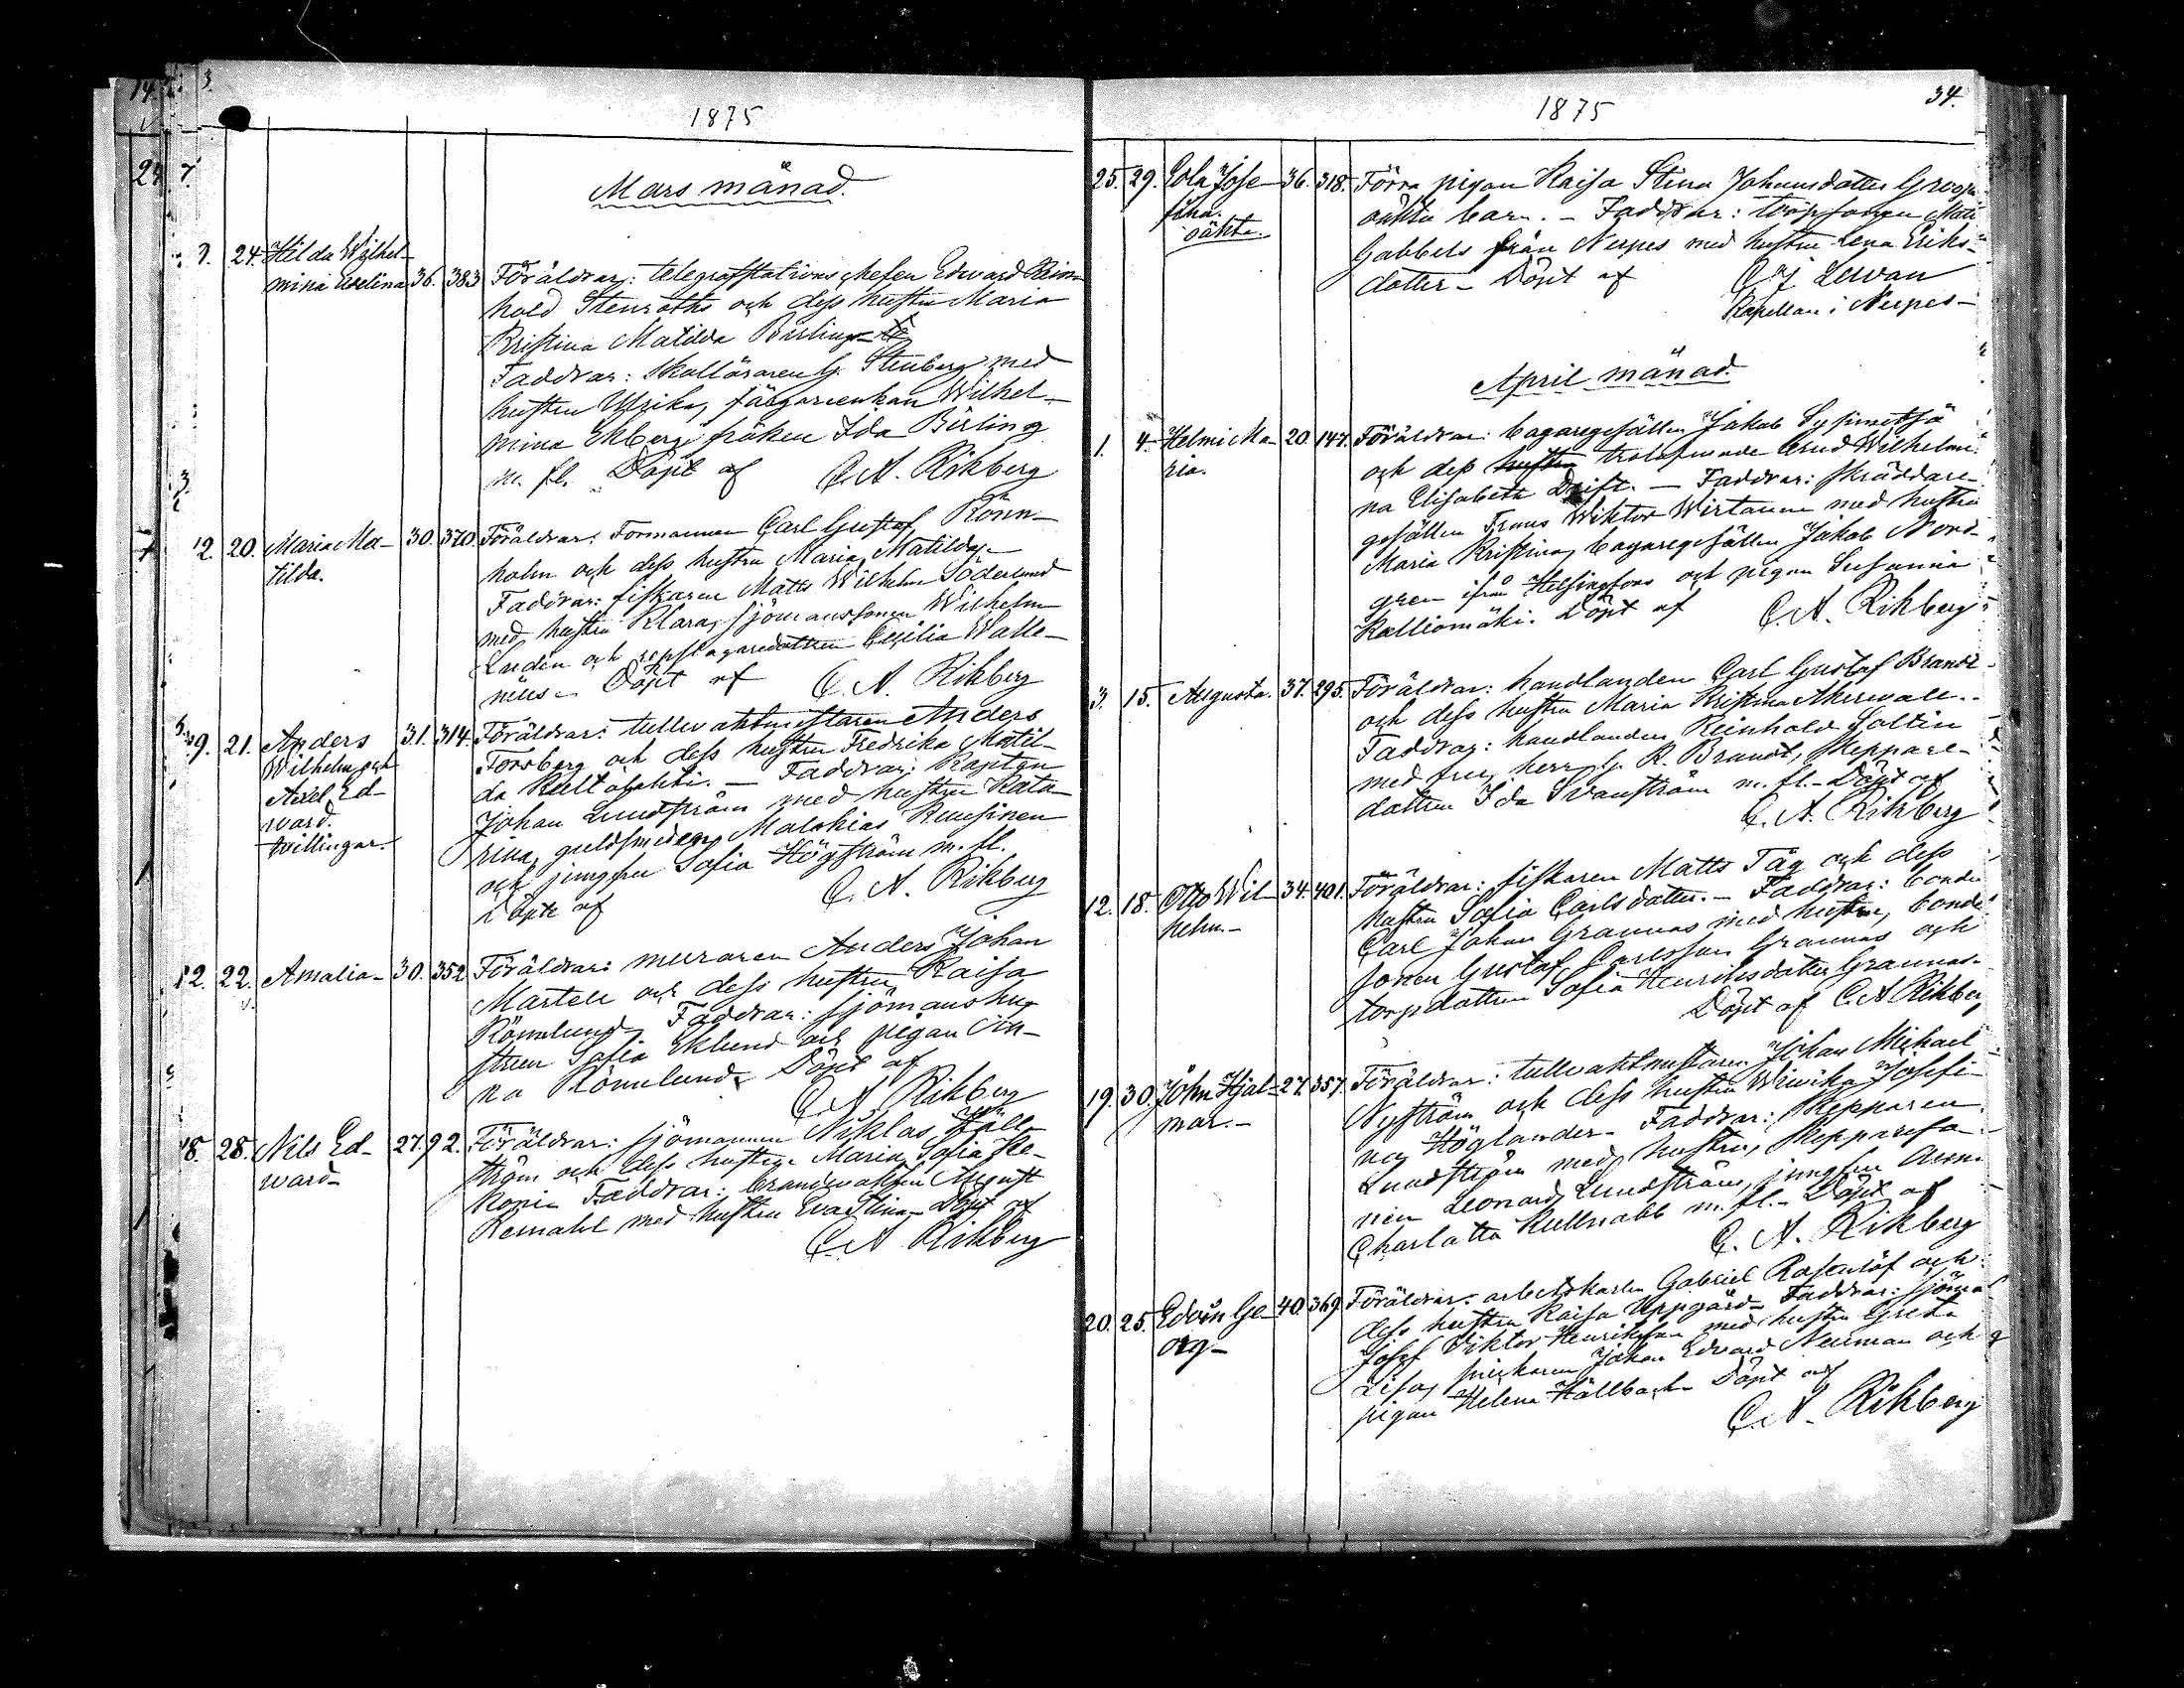 1875
Mars månad.
24. Hilda Wilhel-
mina Evelina 36. 383 Föräldrar: telegrafstations chefen Edward Rein-
hold Stenroths och dess hustru Maria
Kristina Matilda Birling
Faddrar: Skolläraren G. Stenberg med
hustru Ulrika, färgareenkan Wilhel-
mina Ekberg, fröken Ida Birling
m. fl. Döpt af C. A. Rikberg
12. 20. Maria Ma- 30. 370. Föräldrar: Formannen Carl Gustaf Rönn-
tilda. holm och dess hustru Maria Matilda.
Faddrar: fiskaren Matts Wilhelm Söderlund
med hustru Klara, sjömanssonen Wilhelm
Lindén och repslagaredottren Cecilia Walle-
nius. Döpt af C. A. Rikberg
9. 21. Anders 31. 314. Föräldrar: tullvaktmästaren Anders
Wilhelm och Forsberg och dess hustru Fredrika Matil-
Axel Ed- da - Faddrar: Kapten
ward. Johan Lundström med hustru Kata-
Twillingar. rina, guldsmeden Malakias Rensinen
och jungfru Sofia Högström m. fl.
Döpte af C. A. Rikberg
12. 22. Amalia- 30. 352. Föräldrar: muraren Anders Johan
Martell och dess hustru Kaisa
Rönnlund. Faddrar: sjömanshu-
strun Sofia Eklund och pigan An-
na Rönnlund. Döpt af
C. A. Rikberg
18. 28. Nils Ed- 27. 92. Föräldrar: sjömannen Niklas Häll-
ward- ström och dess hustru Maria Sofia
Faddrar: brandvakten August
med hustru Eva Stina. Döpt af
C. A. Rikberg
1875 34.
25. 29. Lola Jose- 36. 318. Förra pigan Kaisa Stina Johansdotter
fina. oäkta barn. - Faddrar: Matts
oäkta. Gabbels från Nerpes med hustru Lena Eriks-
dotter- Döpt af
Kapellan i Nerpes-
April månad.
1. 4. Helmi Ma- 20. 147. Föräldrar: bagaregesällen Jakob
ria. och dess hustru trolofwade brud Wilhelmi-
na Elisabeth Drift. - Faddrar: skräddare-
gesällen Frans Wiktor Wirtanen med hustru
Maria Kristina, bagaregesällen Jakob Nord-
gren ifrån Helsingfors och pigan Susanna
Kalliomäki. Döpt af C. A. Rikberg
3. 15. Augusta. 37. 295. Föräldrar: handlanden Carl Gustaf Brandt
och dess hustru Maria Kristina Åkerwall.
Faddrar: handlanden Reinhold Soltin
med fru, herr G. R. Brandt, skeppare-
dottren Ida Svanström m. fl. - Döpt af
C. A. Rikberg
12. 18. Otto Wil- 34. 401. Föräldrar: fiskaren Matts Tåg och dess
helm.- hustru Sofia Carlsdotter. - Faddrar: bonden
Carl Johan Grannas med hustru, bonde-
sonen Gustaf Carlsson Grannas och
torpdottren Sofia Henriksdotter Grannas.
Döpt af C. A. Rikberg
19. 30. John Hjal- 27. 357. Föräldrar: tullvaktmästaren Johan Michael
mar.- Nyström och dess hustru Wiwika Josefi-
na Höglander. Faddrar: Skepparen
Lundström med hustru, Skeppareso-
nen Leonard Lundström, jungfru Anna
Charlotta Kullnabb m. fl. - Döpt af
C. A. Rikberg
20. 25. Edwin Ge- 40. 369. Föräldrar: arbetskarlen Gabriel Rosenlöf och
org- dess hustru Kaisa Uppgård. Faddrar: sjöman
Josef Viktor Henriksson med hustru Greta
Lisa, snickaren Johan Edvard Neuman och
pigan Helena Hällback. Döpt af
C. A. Rikberg